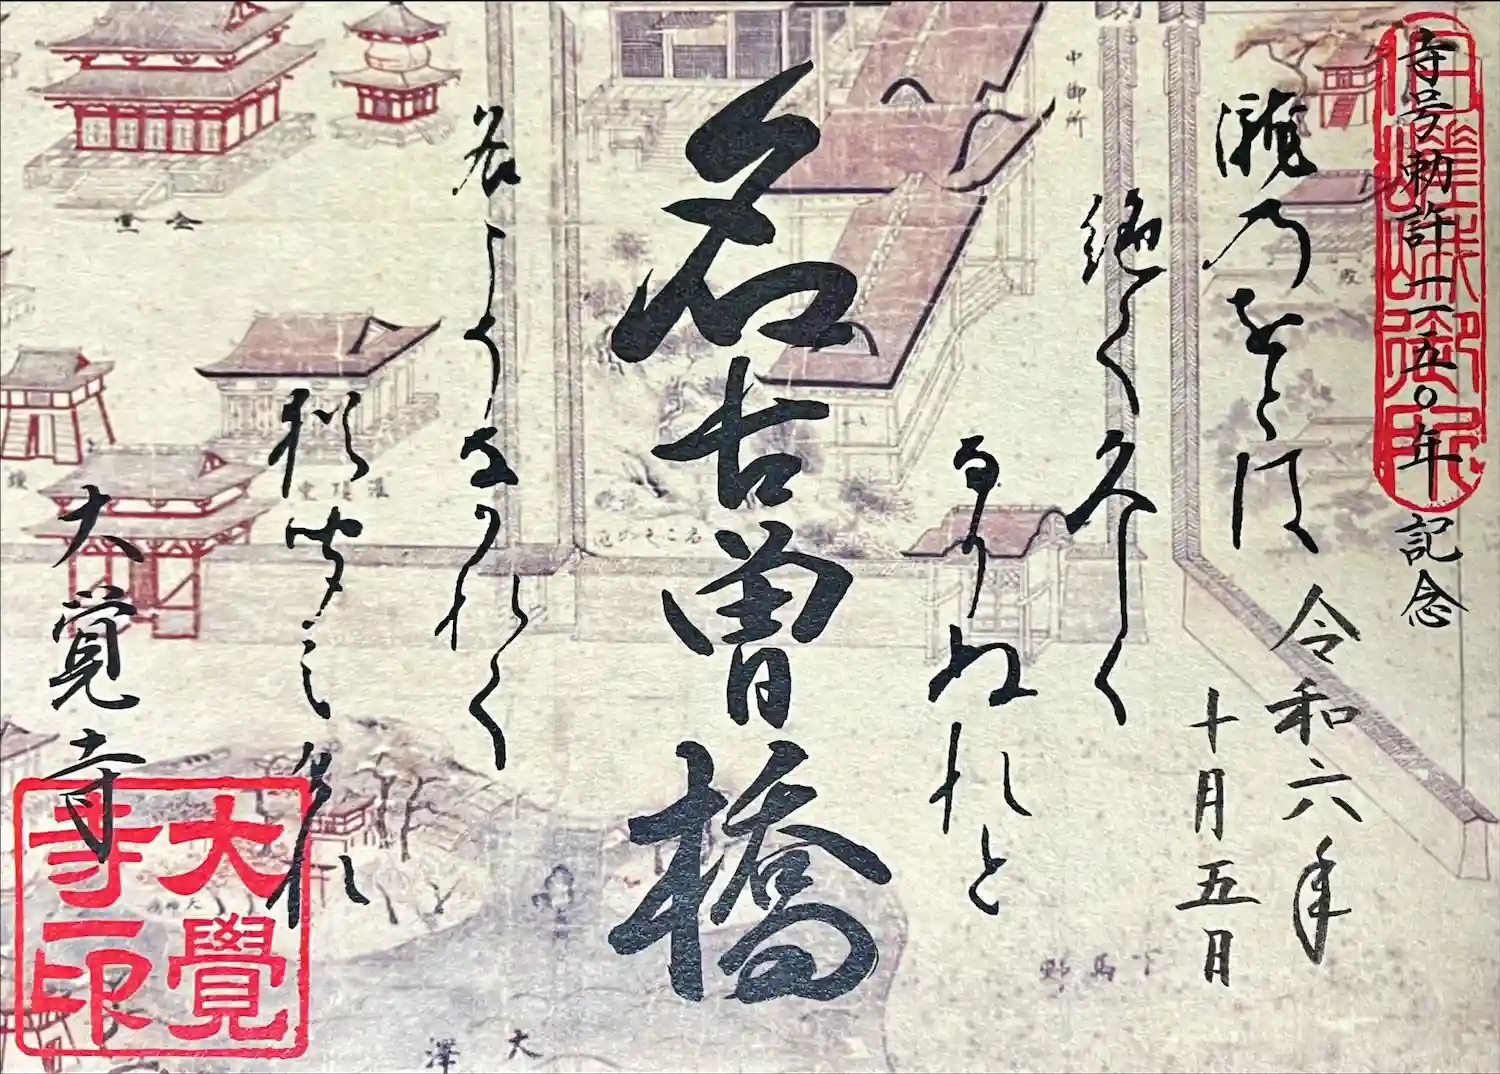 寺号勅許一一五〇年記念
旧嵯峨御所
令和六年
十月五日
瀧乃をとは
絶て久しく
なりぬれと
名古曽橋
名こそなかれて
猶聞こえけれ
大覚寺
大覺寺印
中御所
殿
金堂
灌頂堂
下馬野
大澤